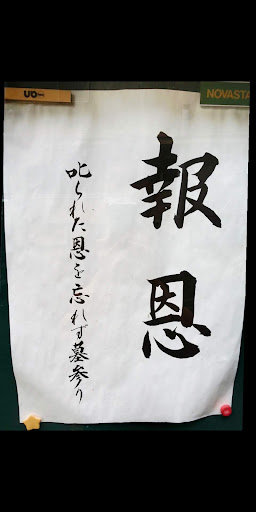 報恩
叱られた恩を忘れず墓参り
NOVASTA